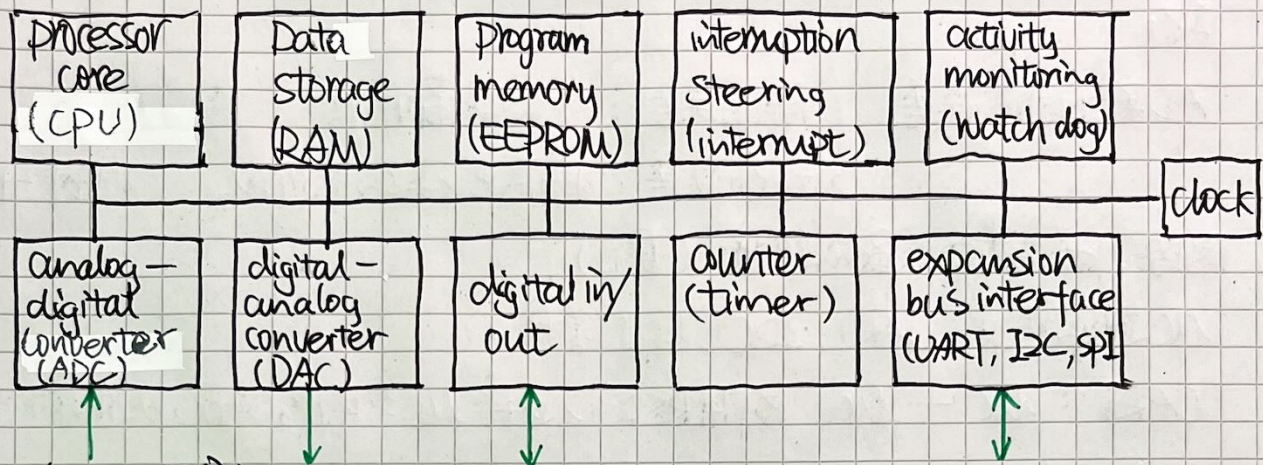 processor
core
(CPU)
Data
storage
(RAM)
Program
memory
(EEPROM)
interruption
steering
(interrupt)
activity
monitoring
(watch dog)
clock
analog-
digital
converter
(ADC)
digital-
analog
converter
(DAC)
digital in/
out
counter
(timer)
expansion
bus interface
(UART, I2C, SPI